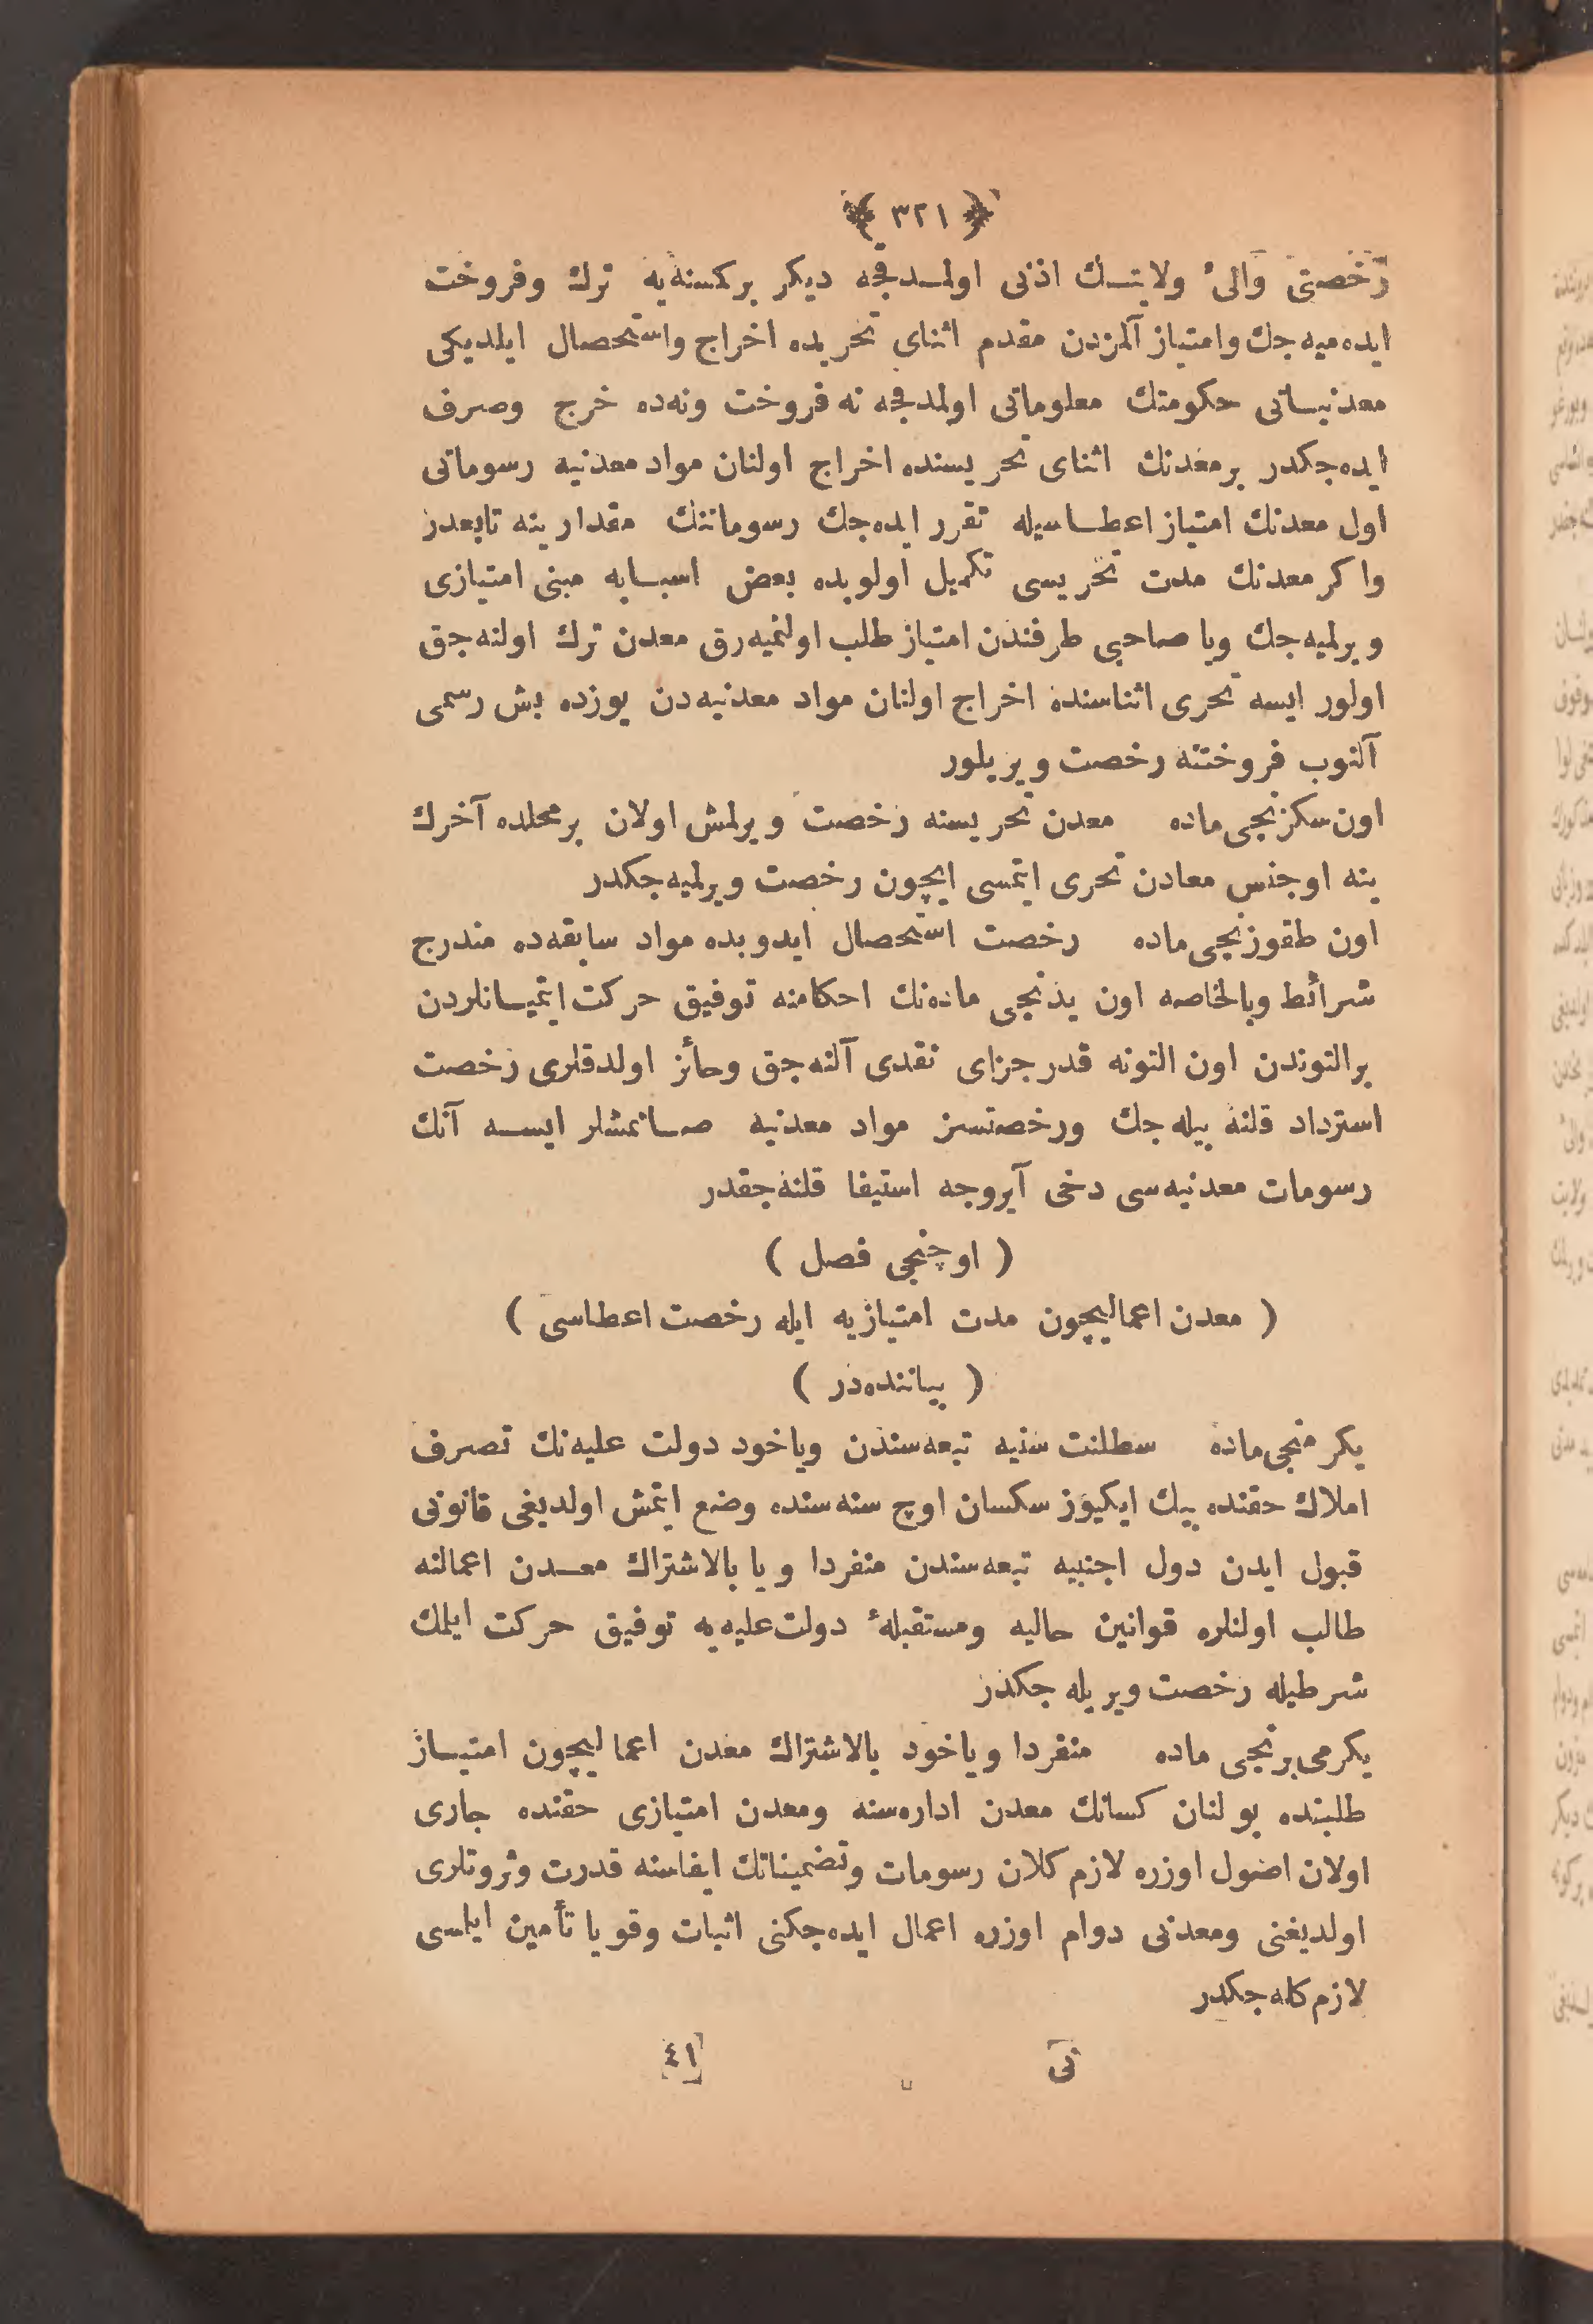 ﴿ ٣٢١ ﴾
رخصتى والىٔ ولايتـك اذنى اولمـدقجه ديكر بركمسنه‌يه ترك وفروخت
ايده‌ميه‌جك وامتياز آلمزدن مقدم اثناى تحريده اخراج واستحصال ايلديكى
معدنيـاتى حكومتك معلوماتى اولمدقجه نه فروخت ونه‌ده خرج وصرف
ايده‌جكدر برمعدنك اثناى تحريسنده اخراج اولنان مواد معدنيه رسوماتى
اول معدنك امتياز اعطـاسيله تقرر ايده‌جك رسوماتنك مقدارينه تابعدر
واكر معدنك مدت تحريسى تكميل اولوبده بعض اسبـابه مبنى امتيازى
ويرلميه‌جك ويا صاحبى طرفندن امتياز طلب اولنميه‌رق معدن ترك اولنه‌جق
اولور ايسه تحرى اثناسنده اخراج اولنان مواد معدنيه‌دن يوزده بش رسمى
آلنوب فروختنه رخصت ويريلور
اون سكزنجى ماده معدن تحريسنه رخصت ويرلمش اولان برمحلده آخرك
ينه اوجنس معادن تحرى ايتمسى ايچون رخصت ويرلميه‌جكدر
اون طقوزنجى ماده رخصت استحصال ايدوبده مواد سابقه‌ده مندرج
شرائط وبالخاصه اون يدنجى ماده‌نك احكامنه توفيق حركت ايتميـانلردن
برالتوندن اون التونه قدر جزاى نقدى آلنه‌جق وحائز اولدقلرى رخصت
استرداد قلنه بيله‌جك ورخصتسز مواد معدنيه صـاتمشلر ايسـه آنك
رسومات معدنيه‌سى دخى آيروجه استيفا قلنه‌جقدر
( اوچنجى فصل )
( معدن اعماليچون مدت امتيازيه ايله رخصت اعطاسى )
( بياننده‌در )
يكرمنجى ماده سطلنت سنيه تبعه‌سندن وياخود دولت عليه‌نك تصرف
املاك حقنده بيك ايكيوز سكسان اوچ سنه‌سنده وضع ايتمش اولديغى قانونى
قبول ايدن دول اجنبيه تبعه‌سندن منفردا ويا بالاشتراك معـدن اعمالنه
طالب اولنلره قوانين حاليه ومستقبلهٔ دولت‌عليه‌يه توفيق حركت ايلمك
شرطيله رخصت ويريله جكدر
يكرمى برنجى ماده منفردا وياخود بالاشتراك معدن اعماليچون امتيـاز
طلبنده بولنان كسانك معدن اداره‌سنه ومعدن امتيازى حقنده جارى
اولان اصول اوزره لازم كلان رسومات وتضميناتك ايفاسنه قدرت وثروتلرى
اولديغنى ومعدنى دوام اوزره اعمال ايده‌جكنى اثبات وقويا تأمين ايلمسى
لازم كله‌جكدر
نى [٤١]